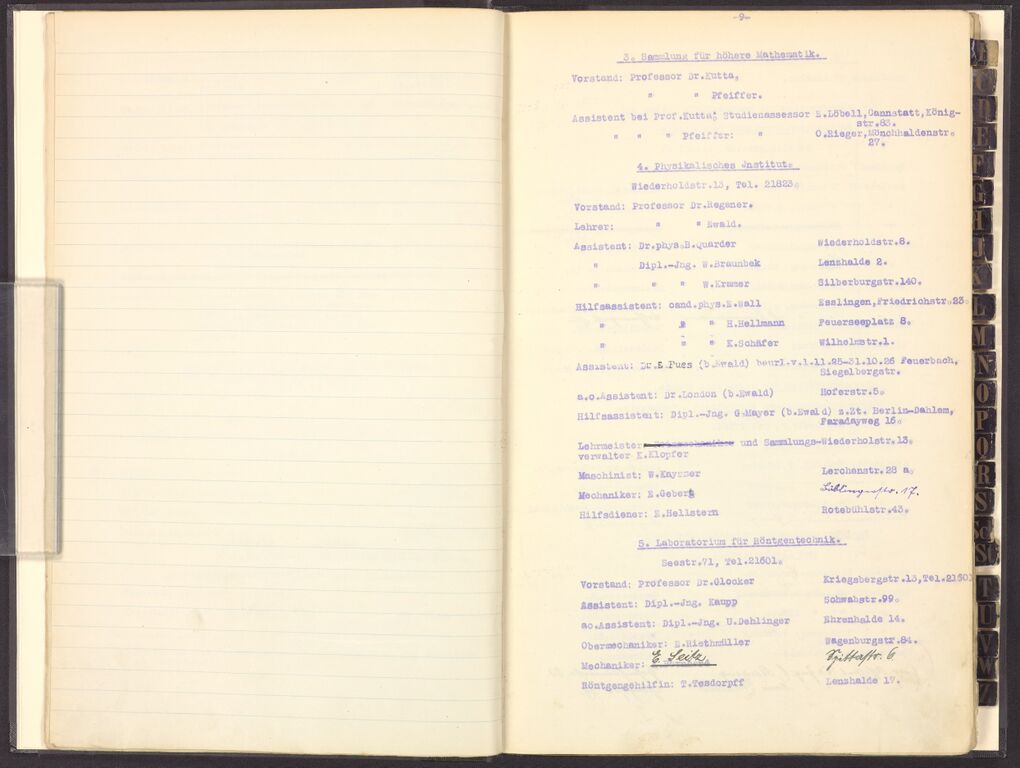 -9-
3. Sammlung für höhere Mathematik.
Vorstand: Professor Dr.Kutta,
" " Pfeiffer.
Assistent bei Prof.Kutta: Studienassessor E.Löbell,Cannstatt,König-
str.83.
" " " Pfeiffer: " O.Rieger,Mönchhaldenstr.
27.
4. Physikalisches Jnstitut.
Wiederholdstr.13, Tel. 21823.
Vorstand: Professor Dr.Regener.
Lehrer: " " Ewald.
Assistent: Dr.phys.B.Quarder Wiederholdstr.8.
" Dipl.-Jng. W.Braunbek Lenzhalde 2.
" " " W.Kramer Silberburgstr.140.
Hilfsassistent: cand.phys.E.Wall Esslingen,Friedrichstr.23.
" " " H.Hellmann Feuerseeplatz 8.
" " " K.Schäfer Wilhelmstr.1.
Assistent: Dr.E.Fues (b.Ewald) beurl.v.1.11.25-31.10.26 Feuerbach,
Siegelbergstr.
a.o.Assistent: Dr.London (b.Ewald) Hoferstr.5.
Hilfsassistent: Dipl.-Jng. G.Mayer (b.Ewald) z.Zt. Berlin-Dahlem,
Faradayweg 16.
Lehrmeister und Sammlungs- Wiederholstr.13.
verwalter K.Klopfer
Maschinist: W.Kaysser Lerchenstr.28 a.
Mechaniker: E.Geberg Böblingerstr. 17.
Hilfsdiener: E.Hellstern Rotebühlstr.43.
5. Laboratorium für Röntgentechnik.
Seestr.71, Tel.21601.
Vorstand: Professor Dr.Glocker Kriegsbergstr.13,Tel.21601
Assistent: Dipl.-Jng. Kaupp Schwabstr.99.
ao.Assistent: Dipl.-Jng. U.Dehlinger Ehrenhalde 14.
Obermechaniker: E.Risthmüller Wagenburgstr.84.
Mechaniker: E. Seitz Spittastr. 6
Röntgengehilfin: T.Tesdorpff Lenzhalde 17.
C
D
E
F
G
H
J
K
L
M
N
O
P
Q
R
S
Sch
St
T
U
V
W
Z